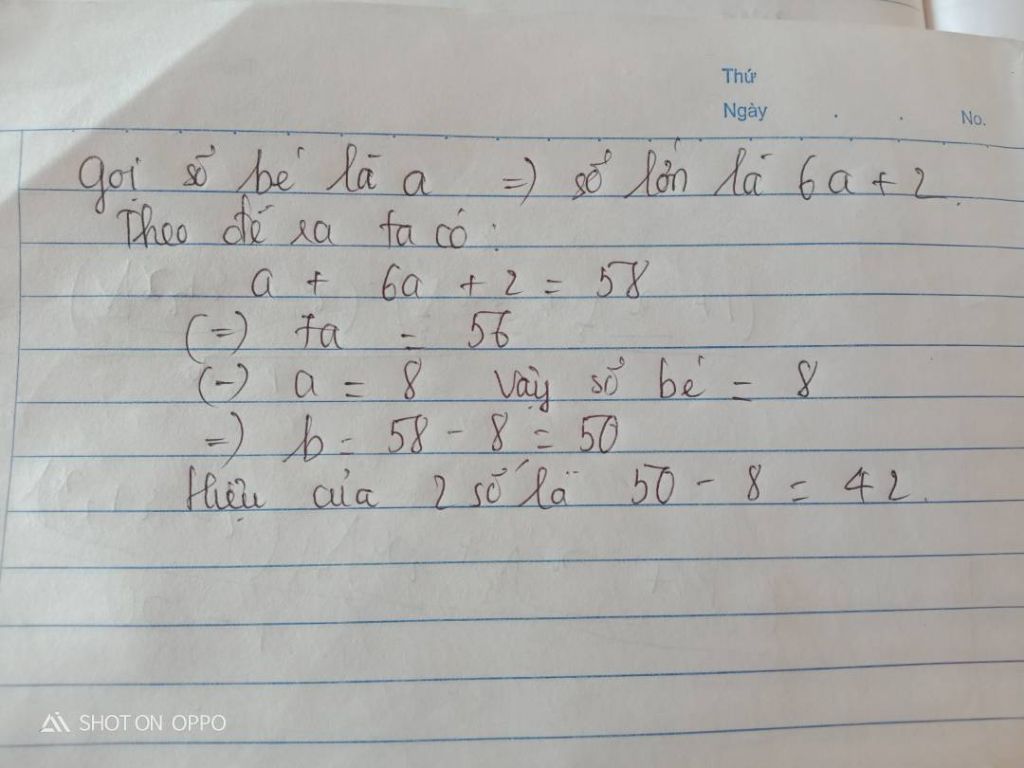 Thứ
Ngày . . No.
Gọi số bé là a => số lớn là 6a + 2.
Theo đề ra ta có:
a + 6a + 2 = 58
(=) 7a = 56
(=) a = 8 Vậy số bé = 8
=) b = 58 - 8 = 50
Hiệu của 2 số là 50 - 8 = 42.
SHOT ON OPPO